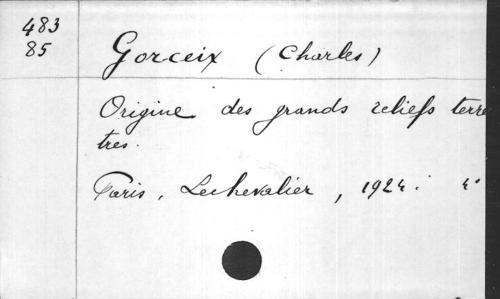 483
85
Gorceix (Charles)
Origine des grands reliefs terre
tres.
Paris, Lechevalier, 1924. 4°